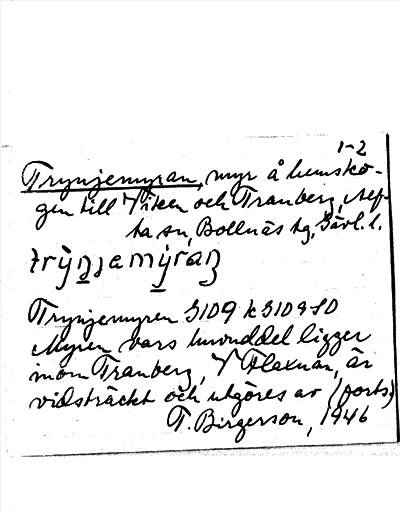 1-2
Trynjemyran, myr å hemsko-
gen till V Viken och Tranberg, Alf-
ta sn, Bollnäs tg, Gävl. l.
trỳnjamýran
Trynjemyren
Myren vars huvuddel ligger
inom Tranberg, V Flaxnan, är
vidsträckt och utgöres av (forts)
T. Birgerson, 1946